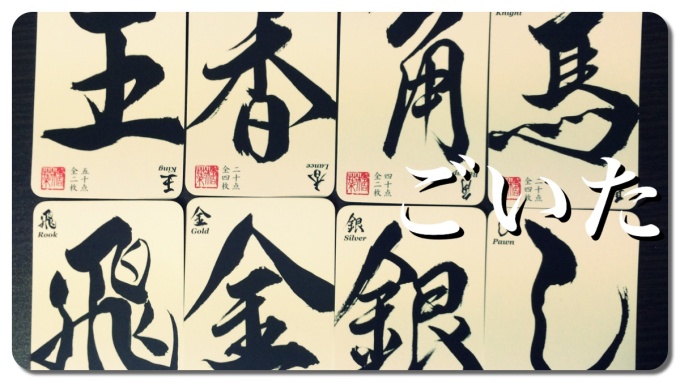 王 香 角 馬
Knight
五十点
全二枚
王
King
二十点
全四枚
香
Lance
四十点
全二枚
角
二十点
全四枚
ごいた
飛
Rook
金
Gold
銀
Silver
Pawn
飛 金 銀 し